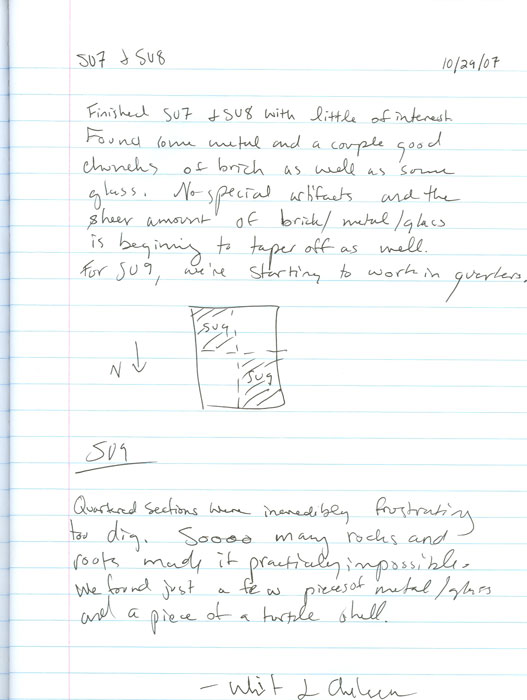 SU7 & SU8 10/29/07
Finished SU7 & SU8 with little of interest
Found some metal and a couple good
chuncks of brick as well as some
glass. No special artifacts and the
sheer amount of brick/metal/glass
is beginning to taper off as well.
For SU9, we're starting to work in quarters.
SU9
N
SU9
SU9
Quartered sections were incredibly frustrating
too dig. Soooo many rocks and
roots made it practicley impossible.
We found just a few pieces of metal/glass
and a piece of a turtle shell.
- Whit & Chelsea